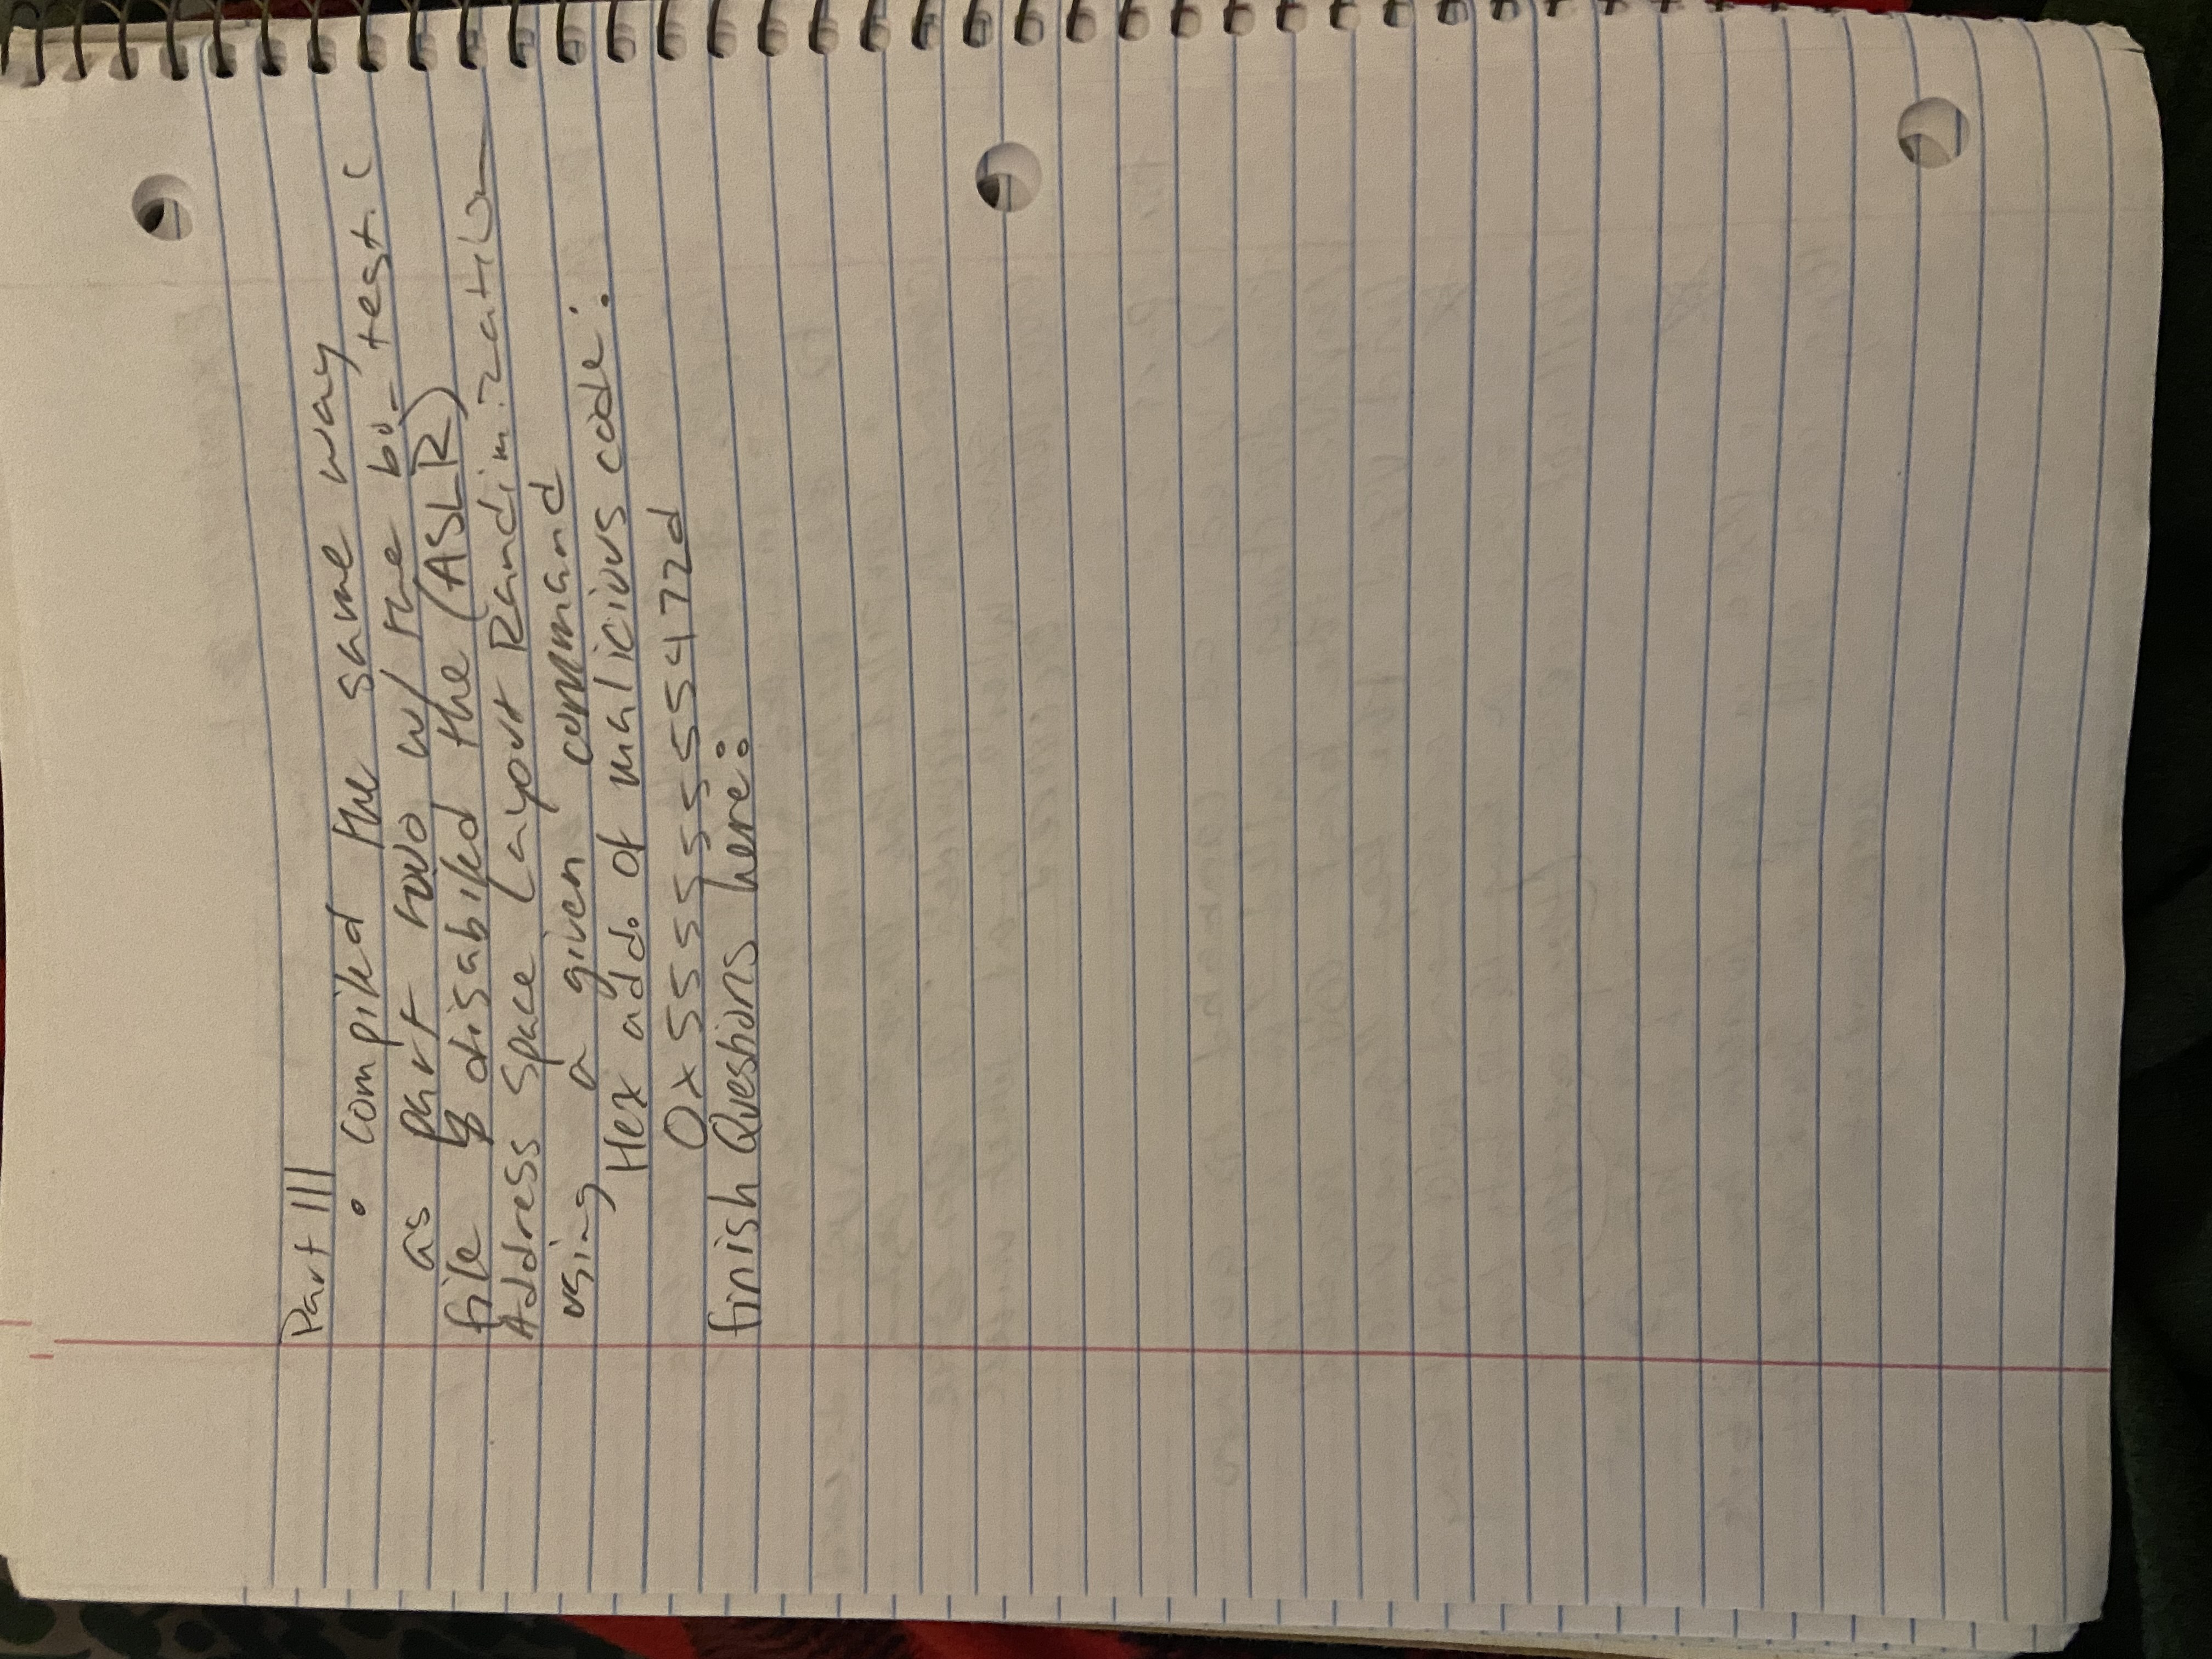 Part III
• compiled the same way
as part two, w/ the bo_test.c
file & disabiled the (ASLR)
Address Space Layout Randimization
using a given command
Hex add. of malicious code:
0x55555555472d
finish Questions here: